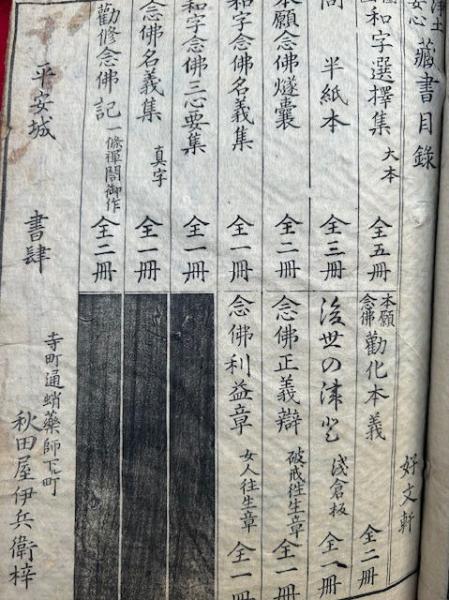 土安心 藏書目錄 好文軒
和字選擇集 大本 全五冊 本願念佛 勸化本義 全二冊
同 半紙本 全三冊 後世の津登 淺倉板 全一冊
本願念佛燧囊 全二冊 念佛正義辯 破戒往生章 全一冊
和字念佛名義集 全一冊 念佛利益章 女人往生章 全一冊
和字念佛三心要集 全一冊
念佛名義集 真字 全一冊
勸修念佛記 一條禪閤御作 全二冊
平安城 書肆 寺町通蛸藥師下町 秋田屋伊兵衛梓